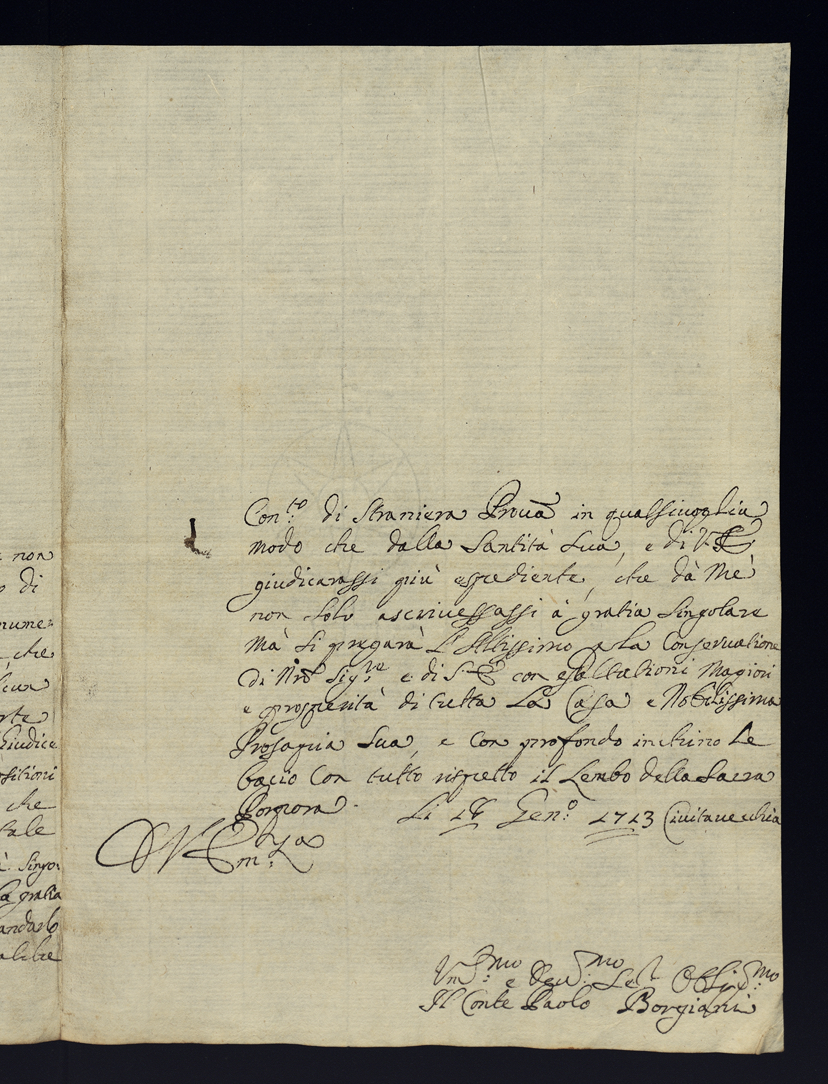 non
di
nume=
che
sua
rte
Giudice
ositioni
che
tale
à singo:
la gratia
andarlo
Con.to di straniera Prova in qualsivoglia
modo che dalla Santità Sua, e di V. E.
giudicarassi più espediente, che dà Mè
non solo ascrivessassi à gratia singolare
mà si pregarà L'Altissimo a la Conservatione
di Nro Sig.re e di S. E. con esaltationi Magiori
e prosperità di tutta La Casa e Nobilissima
Prosapia Sua, e con profondo inchino Le
bacio Con tutto rispetto il Lembo della Sacra
Porpora. Li Gen.o 1713 Civitavecchia
Vm.mo e Dev.mo Se.r Obli.mo
Il Conte Paolo Borgiani